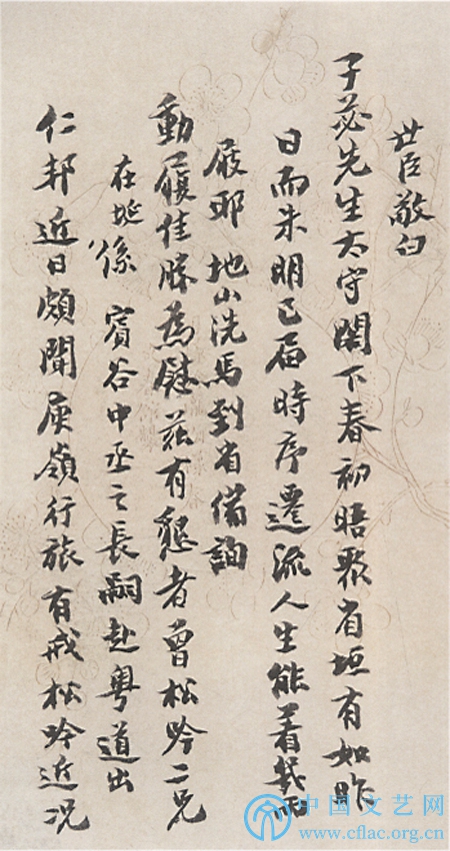 世臣敬白
子苾先生太守閣下春初晤聚省垣有如昨
日而朱明已届時序遷流人生能着幾兩
屐耶 地山洗馬到省備詢
動履佳勝為慰茲有懇者曾松吟二兄
在埏係 賓谷中丞之長嗣赴粤道出
仁邦近日頗聞庾嶺行旅有戒松吟近况
中国文艺网
www.cflac.org.cn